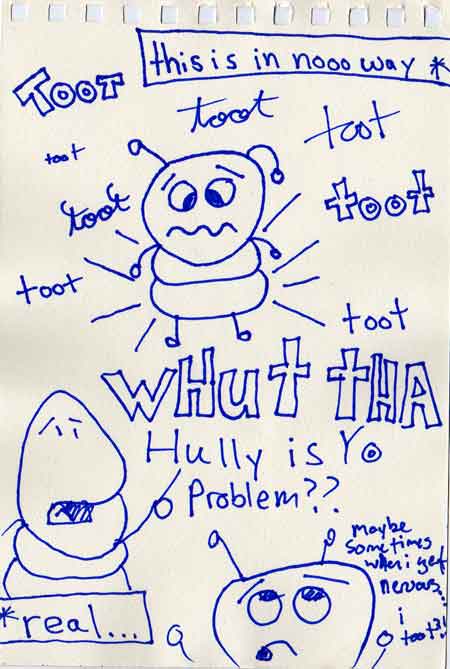 this is in nooo way *
TOOT
toot
toot
toot
toot
toot
toot
toot
WHUT THA
Hully is Yo
Problem??
maybe
sometimes
when i get
nervous..
i
toot?!
*real...